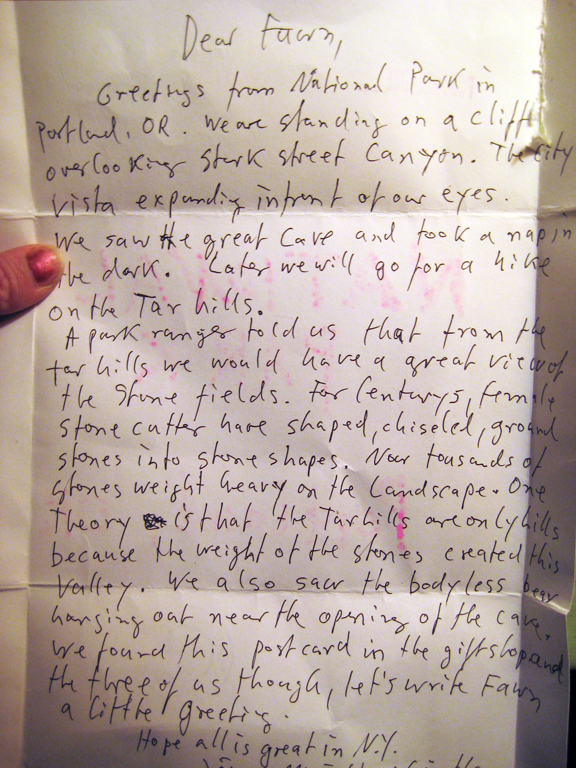 Dear Fawn,
Greetings from National Park in
Portland, OR. We are standing on a Cliff
overlooking Stark street Canyon. The city
vista expanding infront of our eyes.
We saw the great Cave and took a nap in
the dark. Later we will go for a hike
on the Tar hills.
A park ranger told us that from the
tar hills we would have a great view of
the Stone fields. For Centurys, female
stone cutter have shaped, chiseled, ground
stones into stone shapes. Now tousands of
stones weight heavy on the Landscape. One
Theory is that the Tarhills are only hills
because the weight of the stones created this
Valley. We also saw the bodyless bear
hanging out near the opening of the cave.
We found this postcard in the giftshop and
the three of us though, let's write Fawn
a little greeting.
Hope all is great in N.Y.